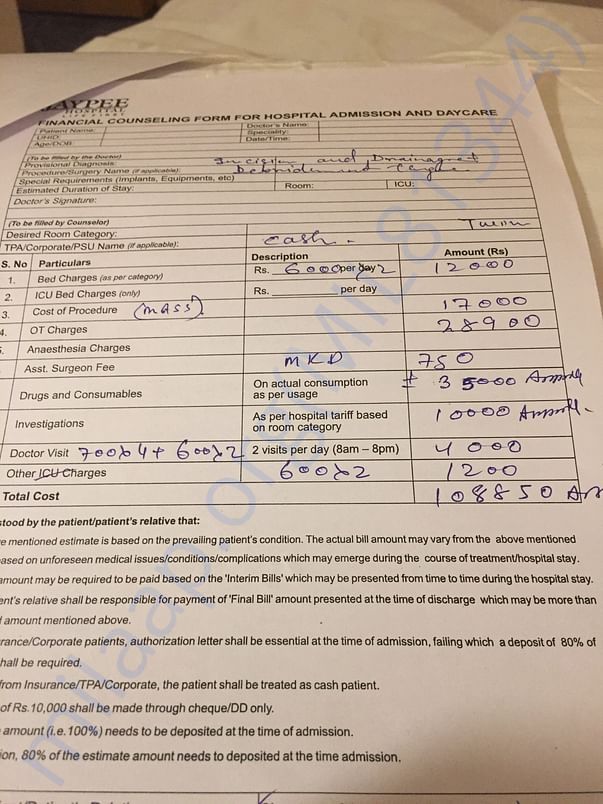 JAYPEE
HOSPITAL
FINANCIAL COUNSELING FORM FOR HOSPITAL ADMISSION AND DAYCARE
Patient Name: Doctor's Name:
UHID: Speciality:
Age/DOB: Date/Time:
(To be filled by the Doctor)
Provisional Diagnosis: Incision and Drainage
Procedure/Surgery Name (if applicable): Debridement
Special Requirements (Implants, Equipments, etc)
Estimated Duration of Stay: Room: ICU:
Doctor's Signature:
(To be filled by Counselor)
Desired Room Category: Twin
TPA/Corporate/PSU Name (if applicable): cash -
S. No Particulars Description Amount (Rs)
1. Bed Charges (as per category) Rs. 6000 per day x2 12000
2. ICU Bed Charges (only) Rs. ____ per day
3. Cost of Procedure (MASS) 17000
4. OT Charges 28900
5. Anaesthesia Charges
Asst. Surgeon Fee MKD 750
Drugs and Consumables On actual consumption as per usage ± 35000
Investigations As per hospital tariff based on room category 10000
Doctor Visit 700x4 + 600x2 2 visits per day (8am – 8pm) 4000
Other ICU Charges 600x2 1200
Total Cost 108850
stood by the patient/patient's relative that:
e mentioned estimate is based on the prevailing patient's condition. The actual bill amount may vary from the above mentioned
ased on unforeseen medical issues/conditions/complications which may emerge during the course of treatment/hospital stay.
amount may be required to be paid based on the 'Interim Bills' which may be presented from time to time during the hospital stay.
ent's relative shall be responsible for payment of 'Final Bill' amount presented at the time of discharge which may be more than
d amount mentioned above.
rance/Corporate patients, authorization letter shall be essential at the time of admission, failing which a deposit of 80% of
hall be required.
from Insurance/TPA/Corporate, the patient shall be treated as cash patient.
of Rs.10,000 shall be made through cheque/DD only.
amount (i.e.100%) needs to be deposited at the time of admission.
ion, 80% of the estimate amount needs to deposited at the time admission.